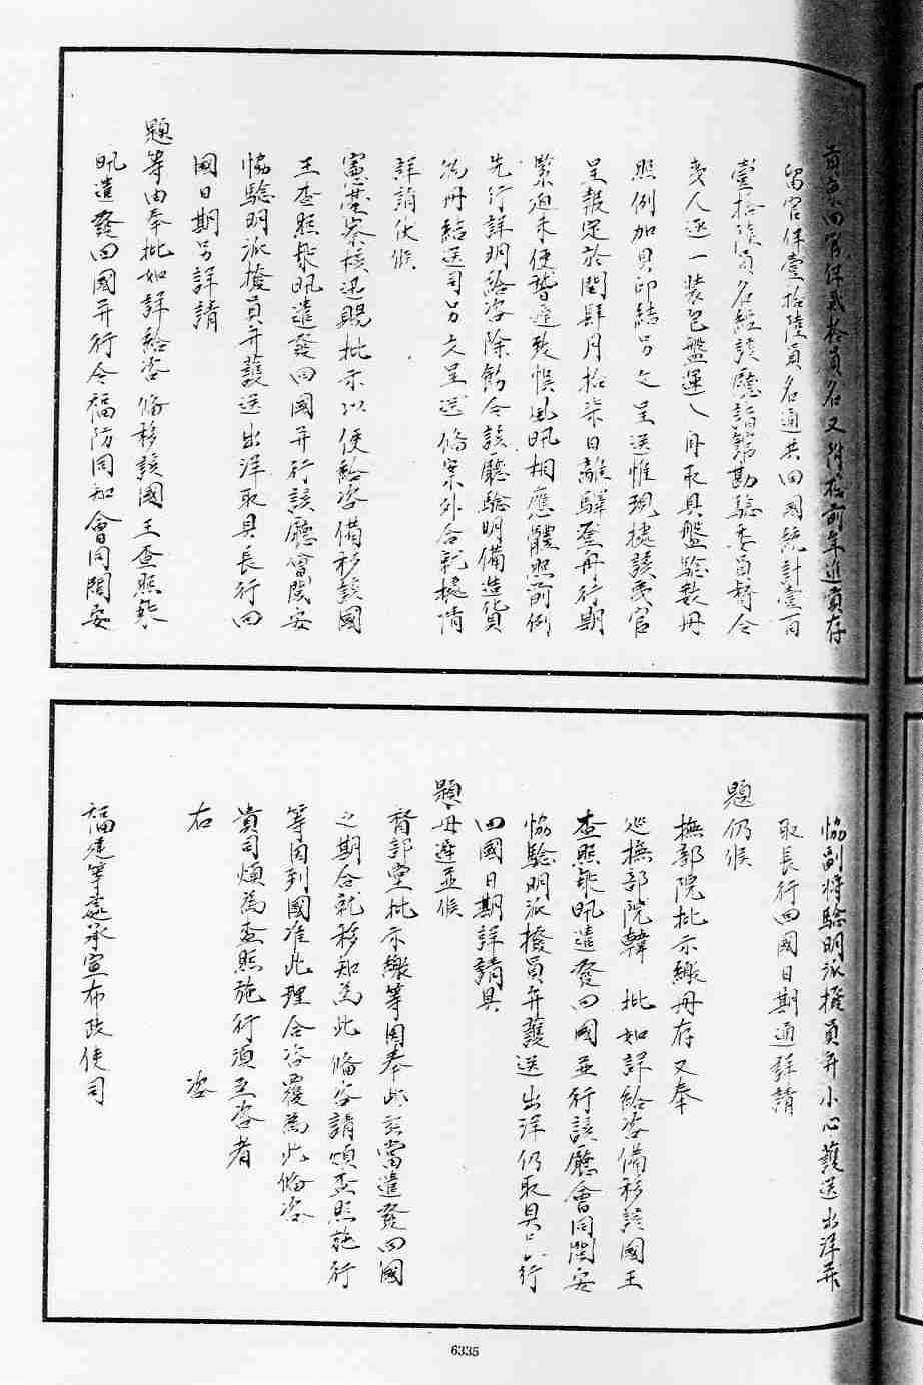 貢京回官伴貳拾員名又附搭前年進貢存
留官伴壹拾陸員名通共回國統計壹百
壹拾㭍員名經該廳詣館勘驗委員督令
夷人逐一裝包盤運入舟取具盤驗數冊
照例加具印結另文呈送惟現據該夷官
呈報定於閏肆月拾柒日離驛登舟行期
緊迫未便瞽遲致悞風汛相應體照前例
先行詳明給咨除飭令該廳驗明備造貨
冊結送司另文呈送條案外合就據情
詳請伏候
憲臺察核迅賜批示以便給咨備移該國
王查照聚汛遣發回國并行該廳會閩安
協驗明派撥員弁護送出洋取具長行回
國日期另詳請
題等由奉批如詳給咨備移該國王查照聚
汛遣發回國并行令福防同知會同閩安
協副將驗明派撥員弁小心護送出洋并
取長行回國日期通詳請
題仍候
撫部院批示繳冊存又奉
巡撫部院韓 批如詳給咨備移該國王
查照聚汛遣發回國並行該廳會同閩安
協驗明派撥員弁護送出洋仍取具長行
回國日期詳請具
題毋遲並候
督部堂批示繳等因奉此該當遣發回國
之期合就移知為此備咨請煩查照施行
等因到國准此理合咨覆為此備咨
貴司煩為查照施行須至咨者
右 咨
福建等處承宣布政使司
6335